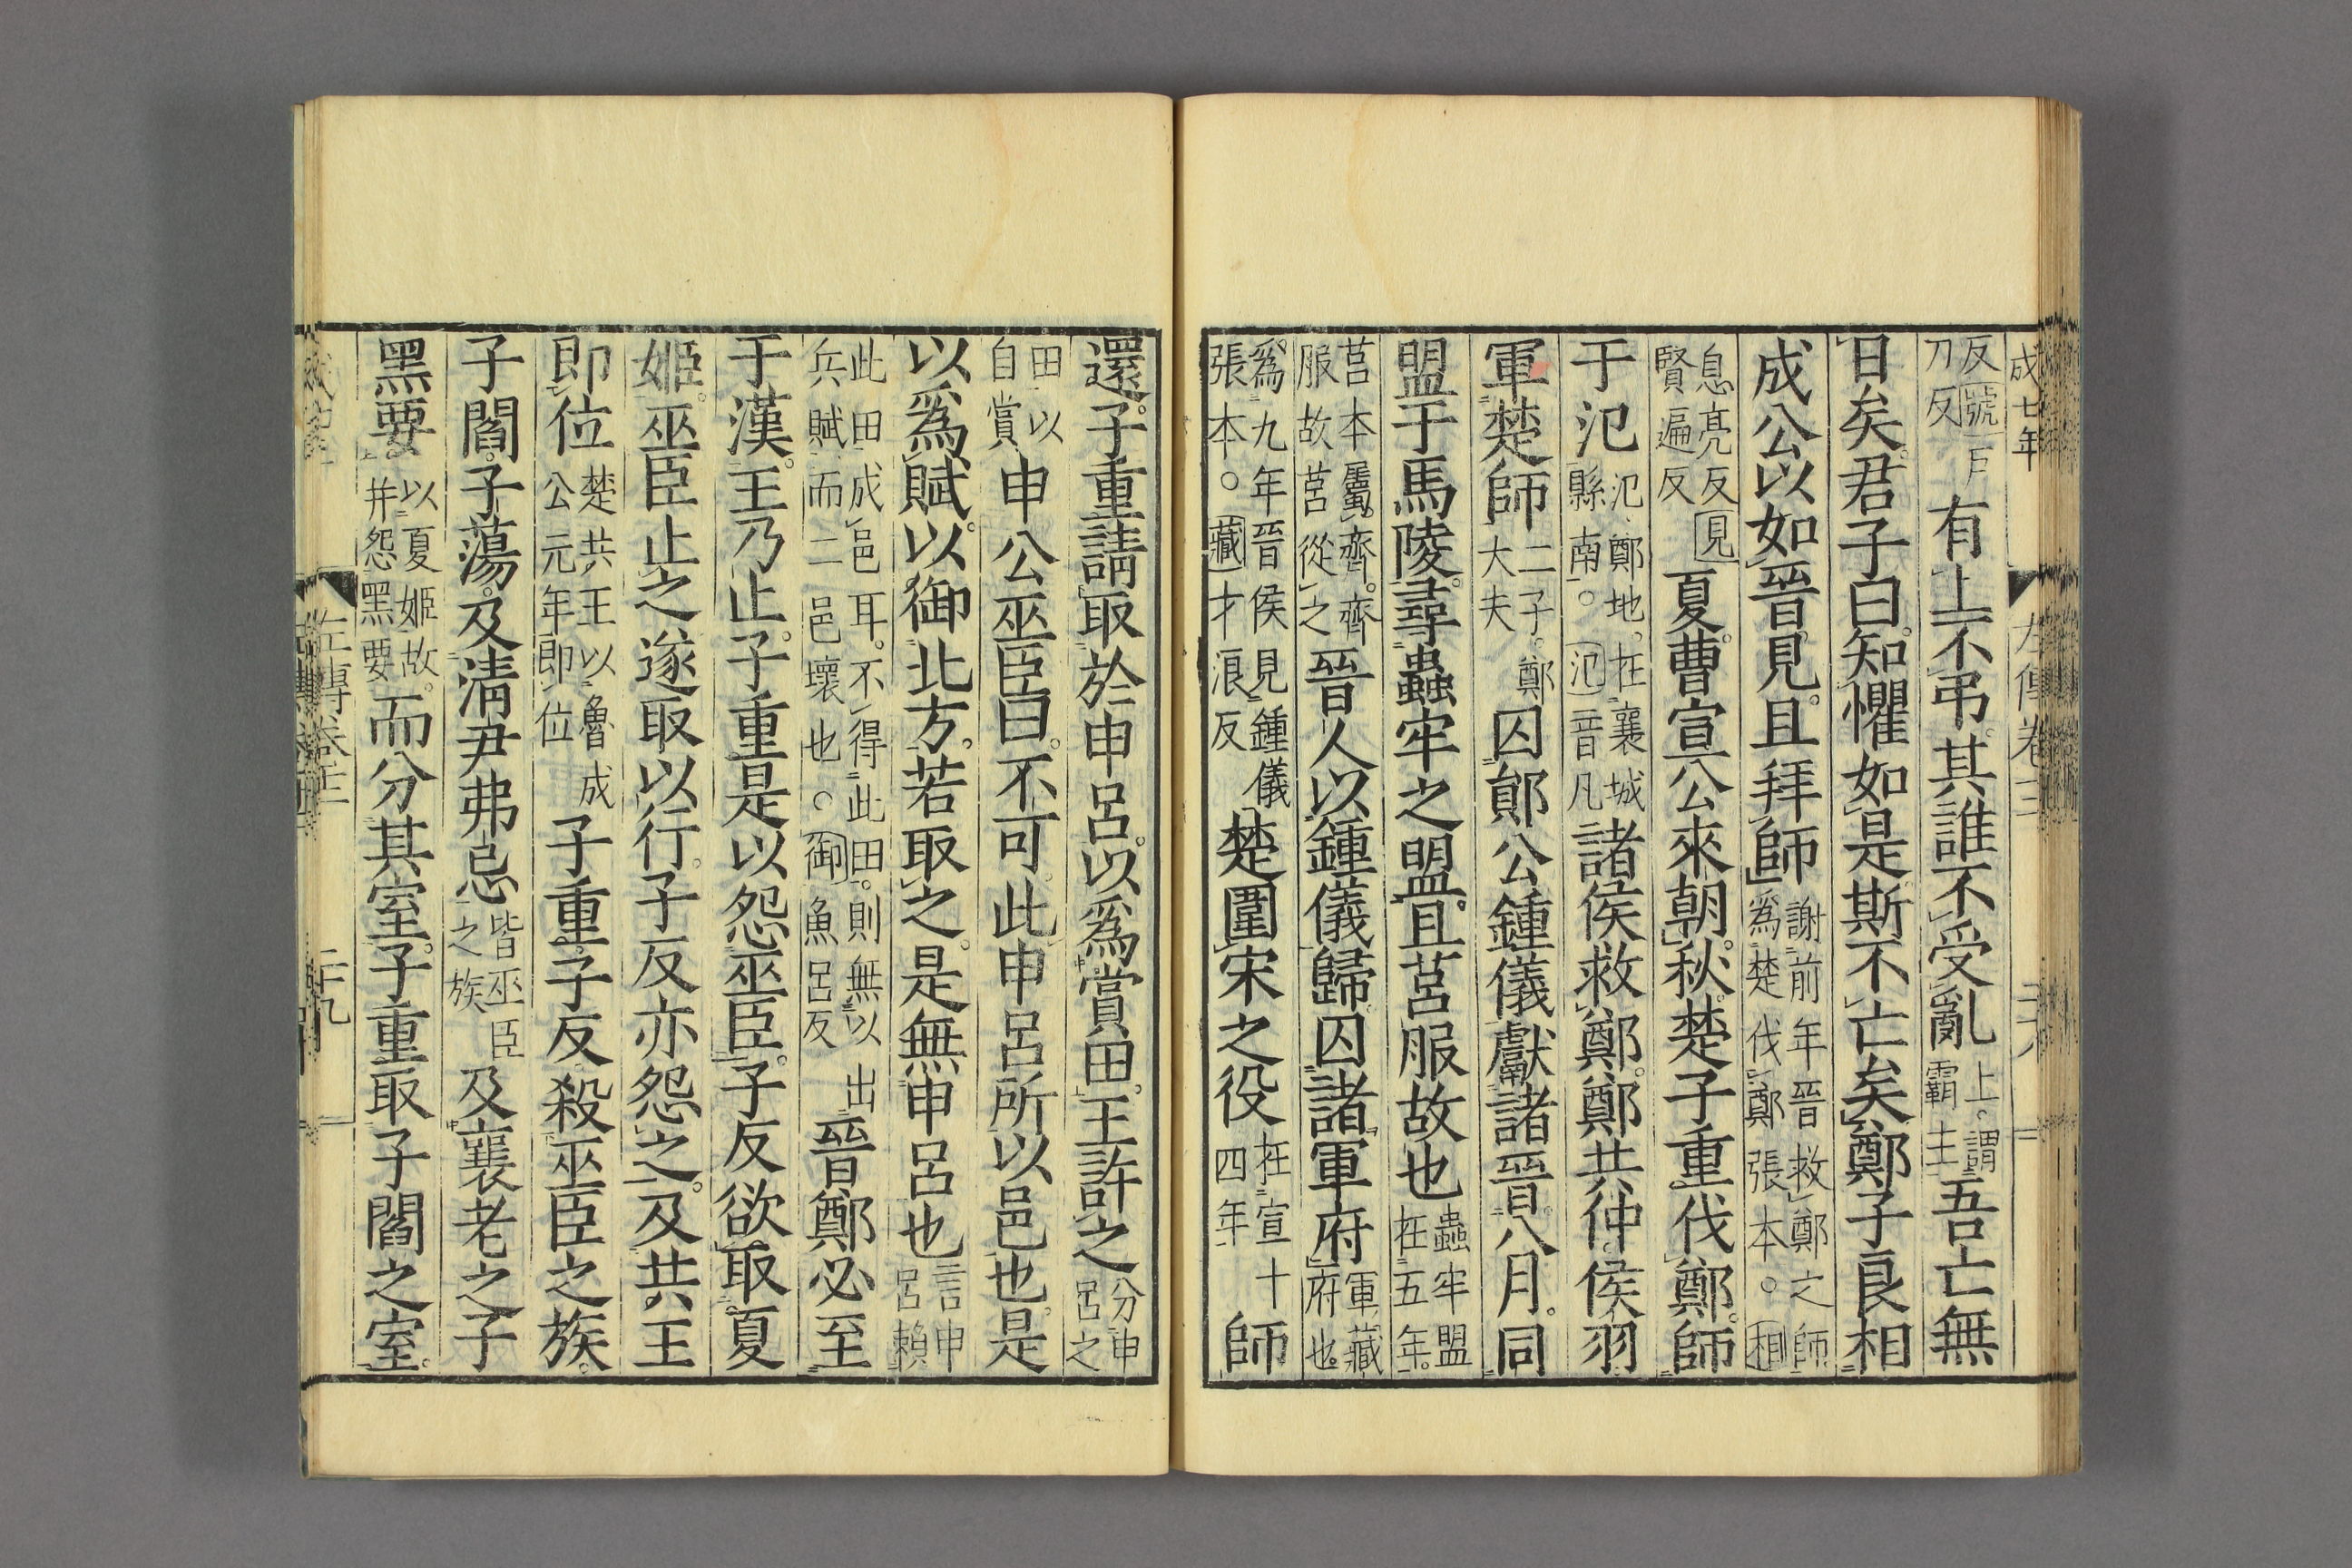 成七年
左傳卷十二
二十八
反號戶刀反有上不弔其誰不受亂上謂霸主吾亡無
日矣君子曰知懼如是斯不亡矣鄭子良相
成公以如晉見且拜師謝前年晉救鄭之師爲楚伐鄭張本○相
息亮反見賢遍反夏曹宣公來朝秋楚子重伐鄭師
于氾氾鄭地在襄城縣南○氾音凡諸侯救鄭鄭共仲侯羽
軍楚師二子鄭大夫囚鄖公鍾儀獻諸晉八月同
盟于馬陵尋蟲牢之盟且莒服故也蟲牢盟在五年
莒本屬齊齊服故莒從之晉人以鍾儀歸囚諸軍府軍藏府也
爲九年晉侯見鍾儀張本○藏才浪反楚圍宋之役在宣十四年師
還子重請取於申呂以爲賞田王許之分申呂之
田以自賞申公巫臣曰不可此申呂所以邑也是
以爲賦以御北方若取之是無申呂也言申呂賴
此田成邑耳不得此田則無以出兵賦而二邑壞也○御魚呂反晉鄭必至
于漢王乃止子重是以怨巫臣子反欲取夏
姬巫臣止之遂取以行子反亦怨之及共王
即位楚共王以魯成公元年即位子重子反殺巫臣之族
子閻子蕩及清尹弗忌皆巫臣之族及襄老之子
黑要以夏姬故并怨黑要而分其室子重取子閻之室
左傳卷十二
二十九